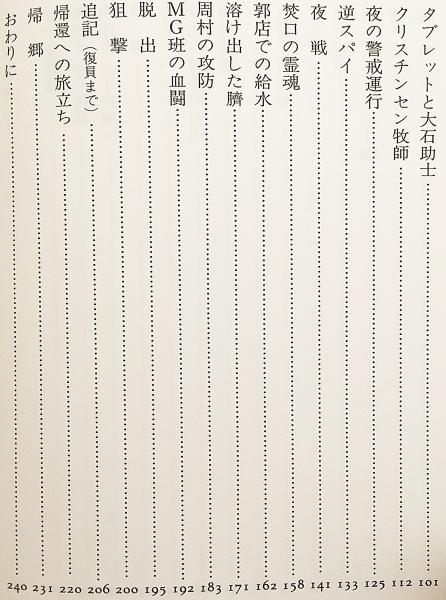 タブレットと大石助士……101
クリスチンセン牧師……112
夜の警戒運行……125
逆スパイ……133
夜　戦……141
焚口の霊魂……158
郭店での給水……162
溶け出した臍……171
周村の攻防……183
MG班の血闘……192
脱　出……195
狙　撃……200
追記（復員まで）……206
帰還への旅立ち……220
帰　郷……231
おわりに……240